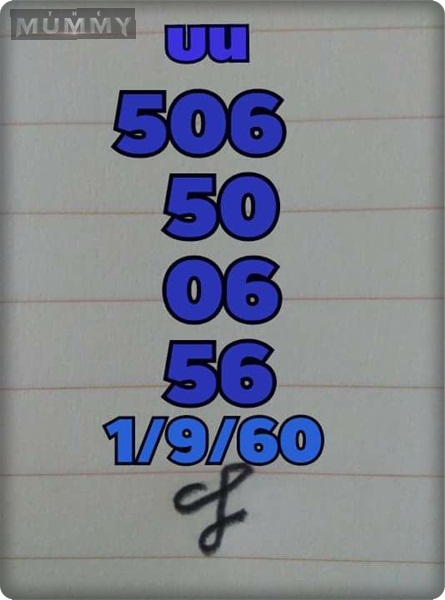 THE
MUMMY
บน
506
50
06
56
1/9/60